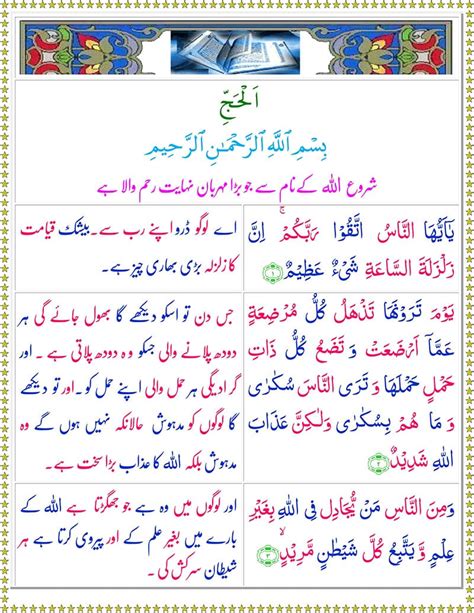 اَلْحَجِّ
بِسْمِ اللَّهِ الرَّحْمَٰنِ الرَّحِيمِ
شروع اللہ کے نام سے جو بڑا مہربان نہایت رحم والا ہے
يٰۤاَيُّهَا النَّاسُ اتَّقُوْا رَبَّكُمْ ۚ اِنَّ
زَلْزَلَةَ السَّاعَةِ شَىْءٌ عَظِيْمٌ ﴿۱﴾
اے لوگو ڈرو اپنے رب سے۔ بیشک قیامت
کا زلزلہ بڑی بھاری چیز ہے۔
يَوْمَ تَرَوْنَهَا تَذْهَلُ كُلُّ مُرْضِعَةٍ
عَمَّاۤ اَرْضَعَتْ وَ تَضَعُ كُلُّ ذَاتِ
حَمْلٍ حَمْلَهَا وَ تَرَى النَّاسَ سُكٰرٰى
وَ مَا هُمْ بِسُكٰرٰى وَلٰـكِنَّ عَذَابَ
اللّٰهِ شَدِيْدٌ ﴿۲﴾
جس دن تو اسکو دیکھے گا بھول جائے گی ہر
دودھ پلانے والی جسکو وہ دودھ پلاتی ہے ۔ اور
گرا دیگی ہر حمل والی اپنے حمل کو۔ اور تو دیکھے
گا لوگوں کو مدہوش حالانکہ نہیں ہوں گے وہ
مدہوش بلکہ اللہ کا عذاب بڑا سخت ہے۔
وَمِنَ النَّاسِ مَنْ يُّجَادِلُ فِى اللّٰهِ بِغَيْرِ
عِلْمٍ وَّ يَتَّبِعُ كُلَّ شَيْطٰنٍ مَّرِيْدٍ ۙ ﴿۳﴾
اور لوگوں میں وہ ہے جو جھگڑتا ہے اللہ کے
بارے میں بغیر علم کے اور پیروی کرتا ہے ہر
شیطان سرکش کی ۔